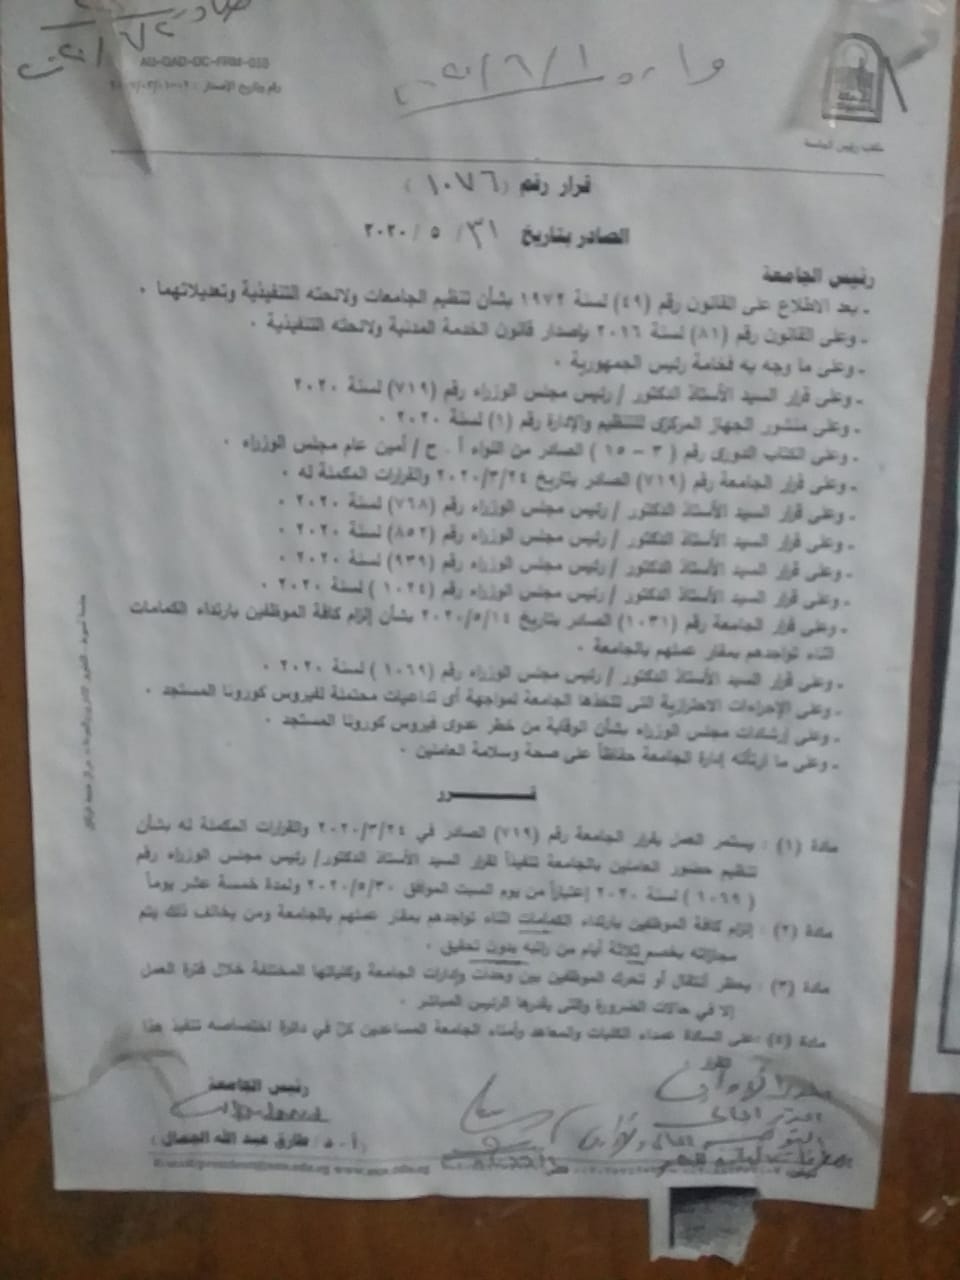 AU-QAD-DC-FRM-010
رقم وتاريخ الإصدار :
وارد ٢٠٢٠/٦/١
مكتب رئيس الجامعة
قرار رقم (١٠٧٦)
الصادر بتاريخ ٣١ / ٥ / ٢٠٢٠
رئيس الجامعة
- بعد الاطلاع على القانون رقم (٤٩) لسنة ١٩٧٢ بشأن تنظيم الجامعات ولائحته التنفيذية وتعديلاتهما .
- وعلى القانون رقم (٨١) لسنة ٢٠١٦ بإصدار قانون الخدمة المدنية ولائحته التنفيذية .
- وعلى ما وجه به فخامة رئيس الجمهورية .
- وعلى قرار السيد الأستاذ الدكتور / رئيس مجلس الوزراء رقم (٧١٩) لسنة ٢٠٢٠
- وعلى منشور الجهاز المركزى للتنظيم والإدارة رقم (١) لسنة ٢٠٢٠ .
- وعلى الكتاب الدورى رقم (٣ – ١٥) الصادر من اللواء أ . ح / أمين عام مجلس الوزراء .
- وعلى قرار الجامعة رقم (٧١٩) الصادر بتاريخ ٢٠٢٠/٣/٢٤ والقرارات المكملة له .
- وعلى قرار السيد الأستاذ الدكتور / رئيس مجلس الوزراء رقم (٧٦٨) لسنة ٢٠٢٠ .
- وعلى قرار السيد الأستاذ الدكتور / رئيس مجلس الوزراء رقم (٨٥٢) لسنة ٢٠٢٠ .
- وعلى قرار السيد الأستاذ الدكتور / رئيس مجلس الوزراء رقم (٩٣٩) لسنة ٢٠٢٠ .
- وعلى قرار السيد الأستاذ الدكتور / رئيس مجلس الوزراء رقم (١٠٢٤ ) لسنة ٢٠٢٠ .
- وعلى قرار الجامعة رقم (١٠٣١) الصادر بتاريخ ٢٠٢٠/٥/١٤ بشأن إلزام كافة الموظفين بارتداء الكمامات
اثناء تواجدهم بمقار عملهم بالجامعة .
- وعلى قرار السيد الأستاذ الدكتور / رئيس مجلس الوزراء رقم (١٠٦٩ ) لسنة ٢٠٢٠ .
- وعلى الإجراءات الاحترازية التى تتخذها الجامعة لمواجهة أى تداعيات محتملة لفيروس كورونا المستجد .
- وعلى إرشادات مجلس الوزراء بشأن الوقاية من خطر عدوى فيروس كورونا المستجد .
- وعلى ما ارتأته إدارة الجامعة حفاظاً على صحة وسلامة العاملين .
قـــــــــرر
مادة (١) : يستمر العمل بقرار الجامعة رقم (٧١٩) الصادر في ٢٠٢٠/٣/٢٤ والقرارات المكملة له بشأن
تنظيم حضور العاملين بالجامعة تنفيذاً لقرار السيد الأستاذ الدكتور/ رئيس مجلس الوزراء رقم
(١٠٦٩ ) لسنة ٢٠٢٠ إعتباراً من يوم السبت الموافق ٢٠٢٠/٥/٣٠ ولمدة خمسة عشر يوماً
مادة (٢) : إلزام كافة الموظفين بارتداء الكمامات اثناء تواجدهم بمقار عملهم بالجامعة ومن يخالف ذلك يتم
مجازاته بخصم ثلاثة أيام من راتبه بدون تحقيق .
مادة (٣) : يحظر أنتقال أو تحرك الموظفين بين وحدات وإدارات الجامعة وكلياتها المختلفة خلال فترة العمل
إلا في حالات الضرورة والتى يقدرها الرئيس المباشر .
مادة (٤) :على السادة عمداء الكليات والمعاهد وأمناء الجامعة المساعدين كل في دائرة اختصاصه تنفيذ هذا
القرار
رئيس الجامعة
(أ . د/ طارق عبد الله الجمال)